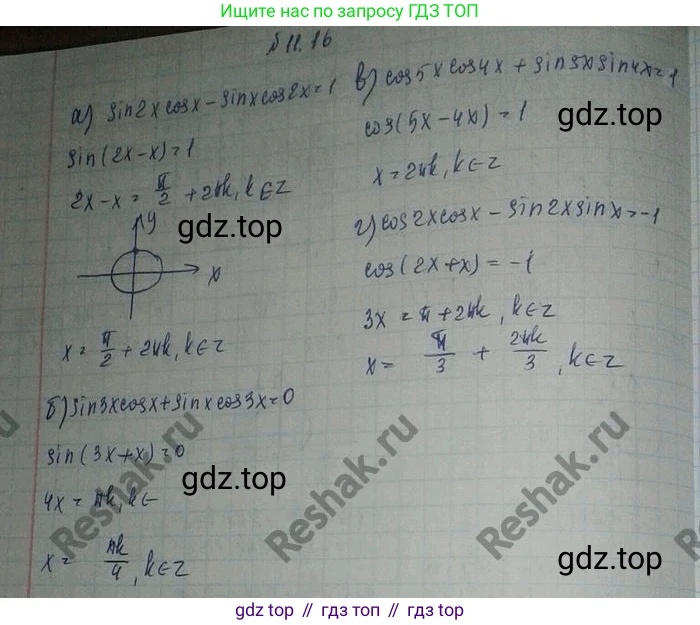 Ищите решения по запросу ГДЗ ТОП
№ 11.16
а) sin2x cosx - sinx cos2x = 1
sin(2x-x) = 1
2x-x = π/2 + 2πk, k∈Z
y
x
x = π/2 + 2πk, k∈Z
б) sin3x cosx + sinx cos3x = 0
sin(3x+x) = 0
4x = πk, k∈
x = πk/4, k∈Z
в) cos5x cos4x + sin5x sin4x = 1
cos(5x-4x) = 1
x = 2πk, k∈Z
г) cos2x cosx - sin2x sinx = -1
cos(2x+x) = -1
3x = π + 2πk, k∈Z
x = π/3 + 2πk/3, k∈Z
gdz.top
gdz.top
gdz.top
gdz.top
Reshak.ru
Reshak.ru
Reshak.ru
gdz top // гдз топ // gdz.top